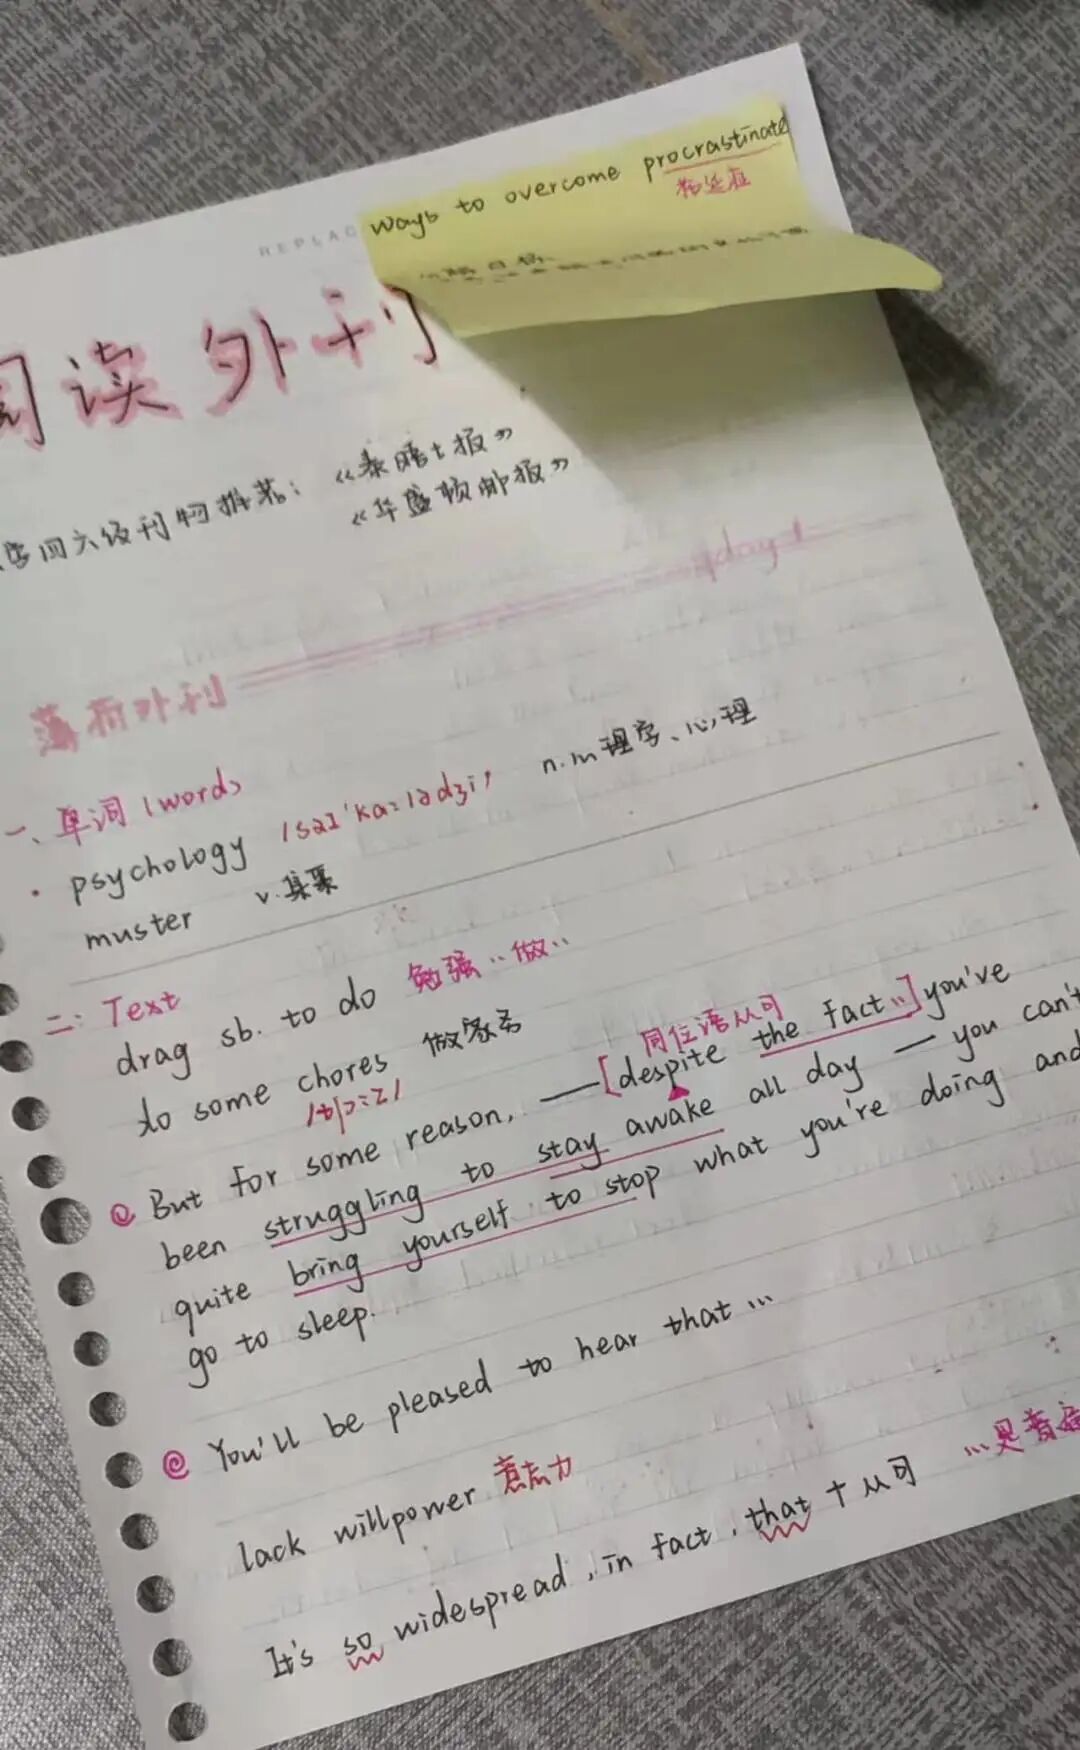 ways to overcome procrastinate
拖延症
REPLAC
阅读外刊
四六级刊物推荐：《泰晤士报》
《华盛顿邮报》
day 1
薄荷外刊
一、单词（words
· psychology /saɪ'ka:lədʒi/ n.心理学、心理
muster v.集聚
二: Text
drag sb. to do 勉强··做··
do some chores 做家务
/tʃɔ:z/
同位语从句
But for some reason, —[despite the fact...] you've
been struggling to stay awake all day — you can't
quite bring yourself to stop what you're doing and
go to sleep.
You'll be pleased to hear that ...
lack willpower 意志力
...是普遍
It's so widespread, in fact, that + 从句